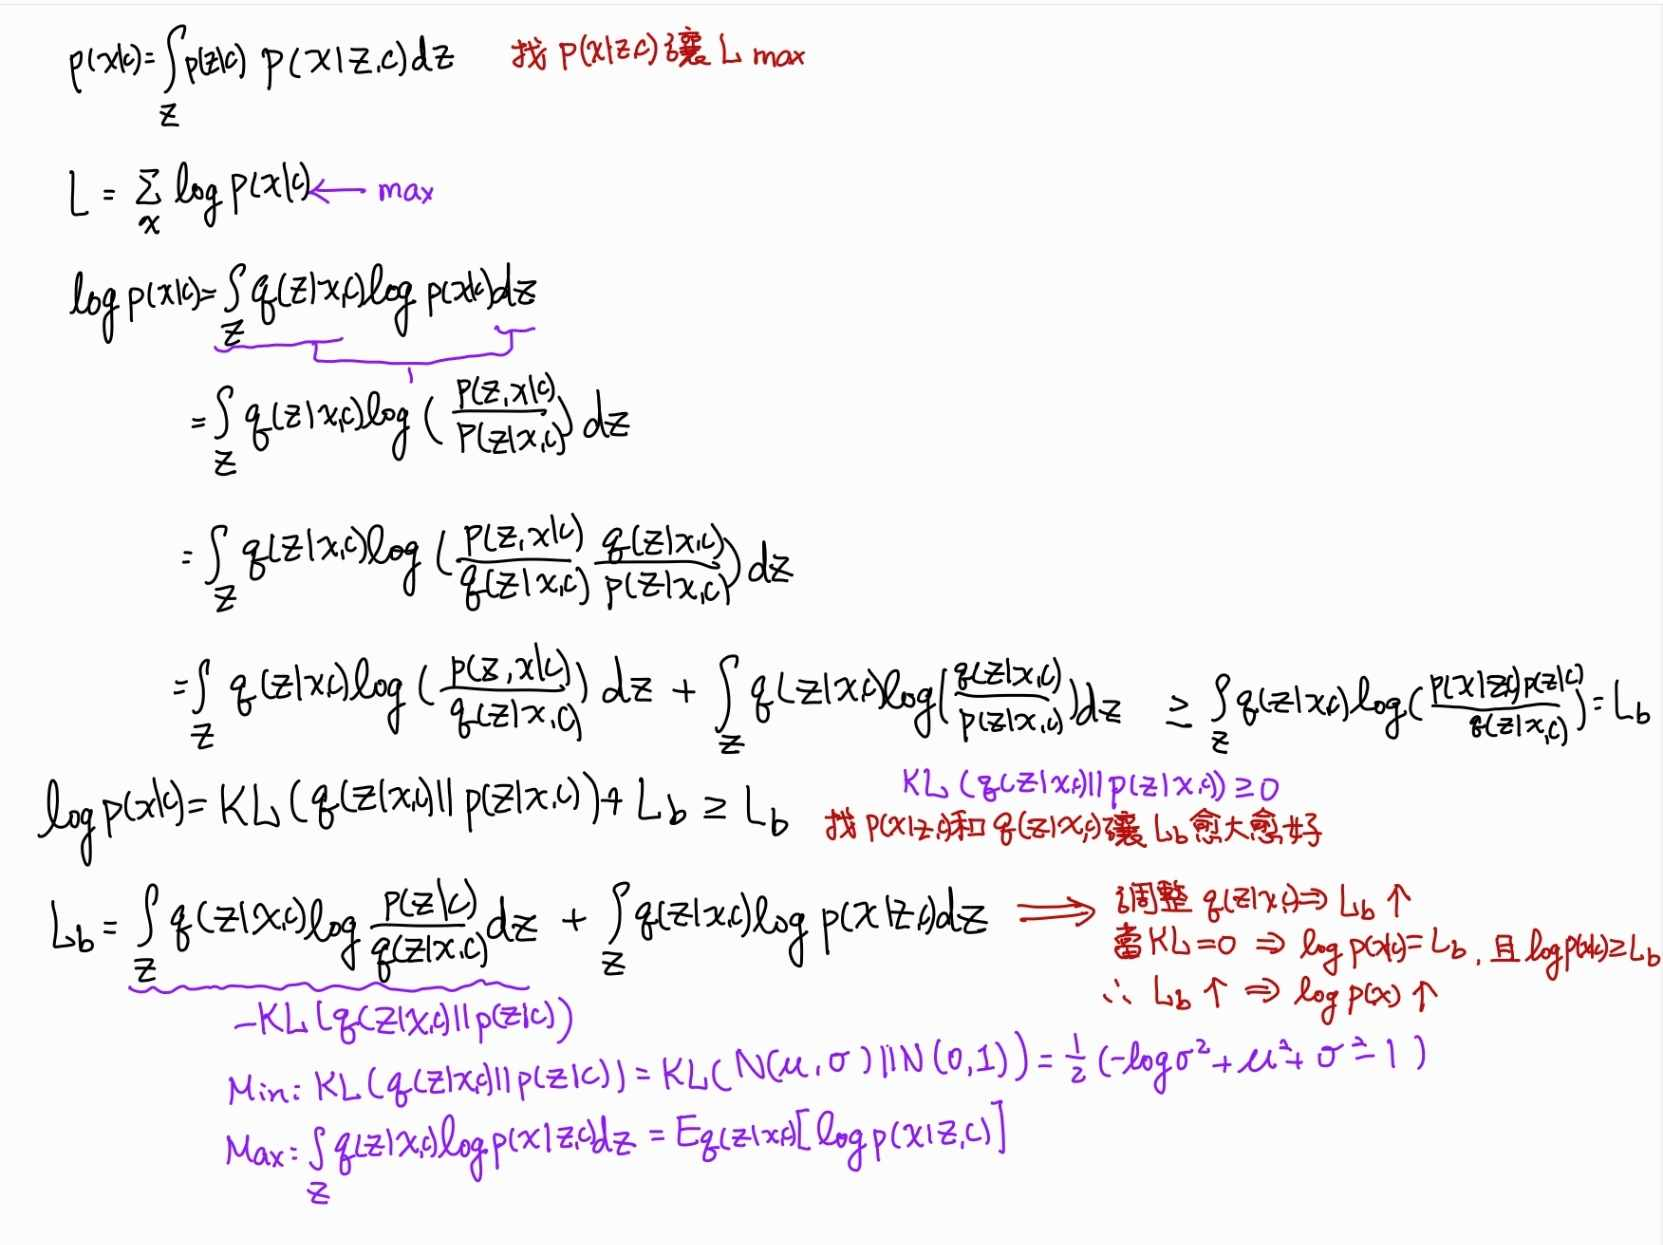 p(x|c)=∫_z p(z|c) p(x|z,c)dz 找 p(x|z,c)讓 L max
L = Σ_x log p(x|c) ← max
log p(x|c)=∫_z q(z|x,c)log p(x|c)dz
1
=∫_z q(z|x,c)log(p(z,x|c)/p(z|x,c))dz
=∫_z q(z|x,c)log(p(z,x|c)/q(z|x,c) q(z|x,c)/p(z|x,c))dz
=∫_z q(z|x,c)log(p(z,x|c)/q(z|x,c))dz + ∫_z q(z|x,c)log(q(z|x,c)/p(z|x,c))dz ≥ ∫_z q(z|x,c)log(p(x|z,c)p(z|c)/q(z|x,c))=L_b
KL(q(z|x,c)||p(z|x,c))≥0
log p(x|c)=KL(q(z|x,c)||p(z|x,c))+L_b ≥ L_b 找 p(x|z,c)和 q(z|x,c)讓 L_b 愈大愈好
L_b = ∫_z q(z|x,c)log p(z|c)/q(z|x,c) dz + ∫_z q(z|x,c)log p(x|z,c)dz ⟹ 調整 q(z|x,c)⇒ L_b ↑
當 KL=0 ⇒ log p(x|c)=L_b, 且 log p(x|c)≥L_b
∴ L_b ↑ ⇒ log p(x) ↑
-KL(q(z|x,c)||p(z|c))
Min: KL(q(z|x,c)||p(z|c))=KL(N(μ,σ)||N(0,1))=1/2(-logσ²+μ²+σ²-1)
Max: ∫_z q(z|x,c)log p(x|z,c)dz = E_q(z|x,c)[log p(x|z,c)]